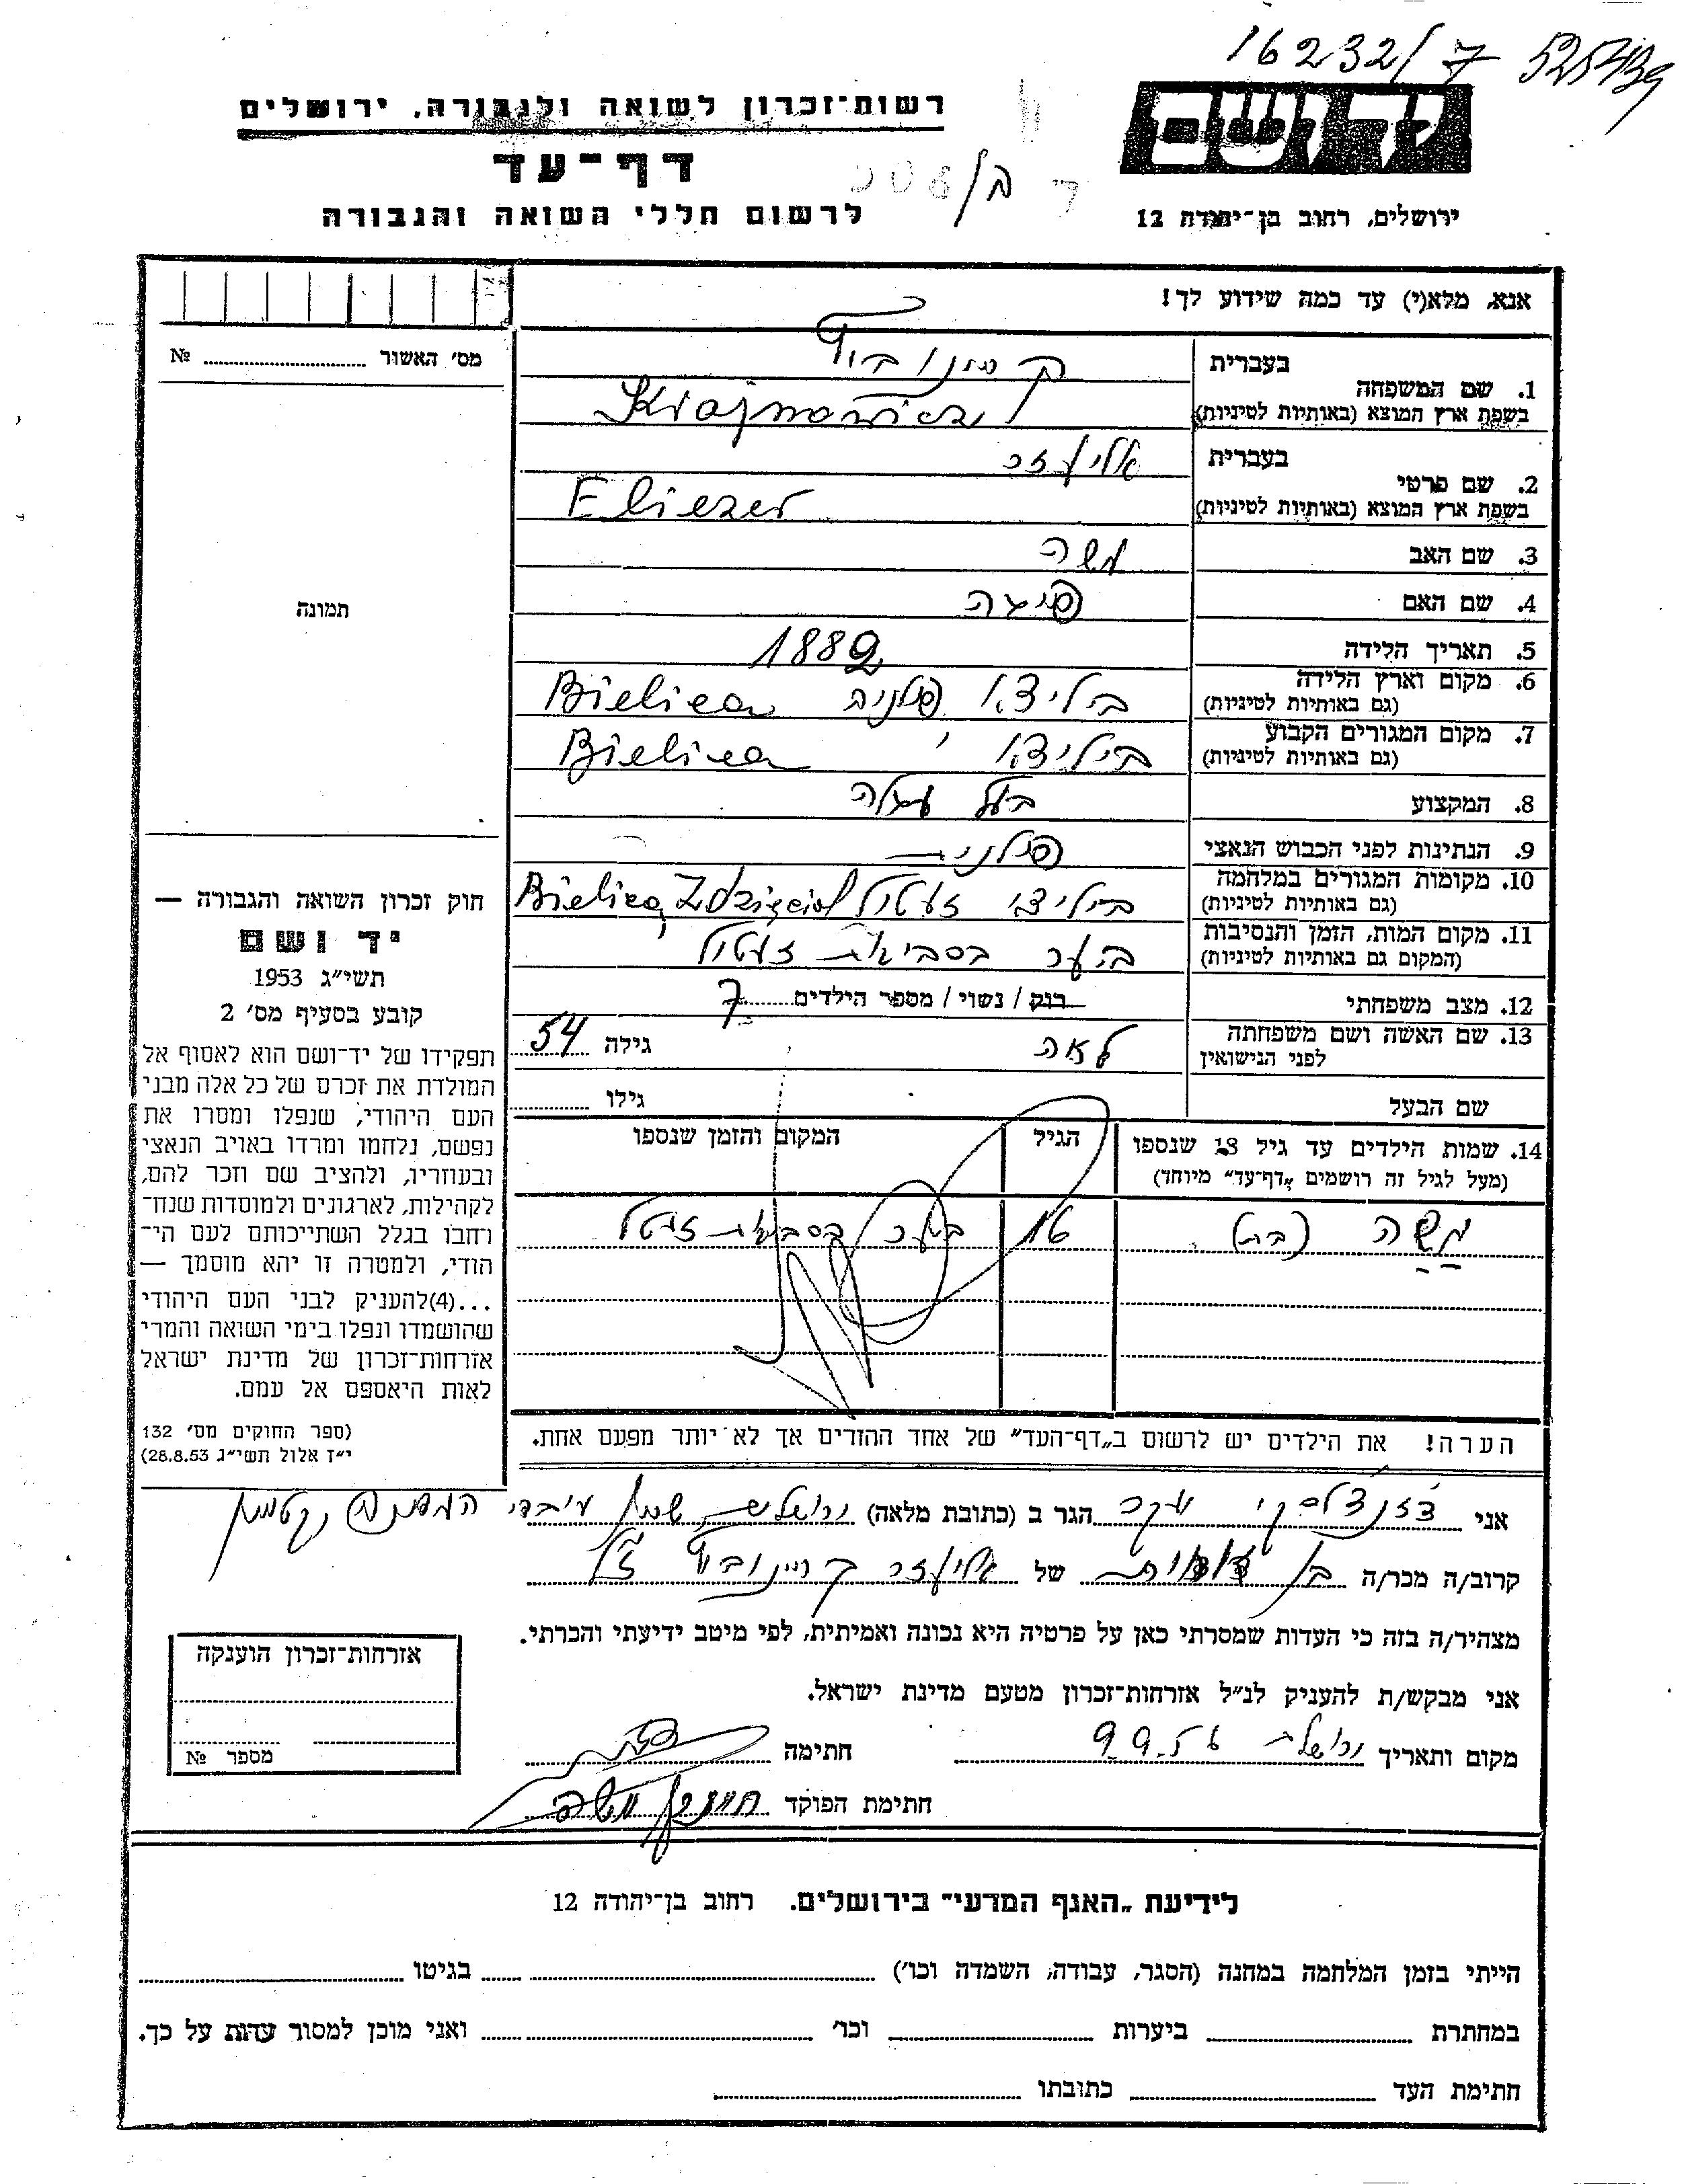 16232/7 525439
יד ושם
ירושלים, רחוב בן־יהודה 12
רשות־זכרון לשואה ולגבורה, ירושלים
דף־עד
לרשום חללי השואה והגבורה
אנא, מלא(י) עד כמה שידוע לך!
מס' האשור № 
1. שם המשפחה בעברית
בשפת ארץ המוצא (באותיות לטיניות) Krajnowicz
2. שם פרטי בעברית אליעזר
בשפת ארץ המוצא (באותיות לטיניות) Eliezer
3. שם האב משה
4. שם האם
5. תאריך הלידה 1882
6. מקום וארץ הלידה (גם באותיות לטיניות) פולניה Bielica
7. מקום המגורים הקבוע (גם באותיות לטיניות) Bielica
8. המקצוע
9. הנתינות לפני הכבוש הנאצי פולנית
10. מקומות המגורים במלחמה (גם באותיות לטיניות) Bielica, Zdzięciol
11. מקום המות, הזמן והנסיבות (המקום גם באותיות לטיניות) ביער בסביבות זעטיל
12. מצב משפחתי רוק / נשוי / מספר הילדים 7
13. שם האשה ושם משפחתה לפני הנישואין לאה גילה 54
שם הבעל גילו
14. שמות הילדים עד גיל 18 שנספו
(מעל לגיל זה רושמים „דף־עד" מיוחד)
הגיל
המקום והזמן שנספו
משה (בן) 16 ביער בסביבות זעטל
הערה! את הילדים יש לרשום ב„דף־העד" של אחד ההורים אך לא יותר מפעם אחת.
תמונה
חוק זכרון השואה והגבורה —
יד ושם
תשי"ג 1953
קובע בסעיף מס' 2
תפקידו של יד־ושם הוא לאסוף אל
המולדת את זכרם של כל אלה מבני
העם היהודי, שנפלו ומסרו את
נפשם, נלחמו ומרדו באויב הנאצי
ובעוזריו, ולהציב שם וזכר להם,
לקהילות, לארגונים ולמוסדות שנח־
רבו בגלל השתייכותם לעם הי־
הודי, ולמטרה זו יהא מוסמך —
...(4)להעניק לבני העם היהודי
שהושמדו ונפלו בימי השואה והמרי
אזרחות־זכרון של מדינת ישראל
לאות היאספם אל עמם.
(ספר החוקים מס' 132
י"ז אלול תשי"ג 28.8.53)
אני יעקב הגר ב (כתובת מלאה) ירושלים, שכון עובדי המדינה
קרוב/ה מכר/ה בן דודו של אליעזר קריינוביץ ז"ל
מצהיר/ה בזה כי העדות שמסרתי כאן על פרטיה היא נכונה ואמיתית, לפי מיטב ידיעתי והכרתי.
אני מבקש/ת להעניק לנ"ל אזרחות־זכרון מטעם מדינת ישראל.
מקום ותאריך ירושלים 9.9.56 חתימה
חתימת הפוקד
אזרחות־זכרון הוענקה
מספר №
לידיעת „האגף המדעי" בירושלים. רחוב בן־יהודה 12
הייתי בזמן המלחמה במחנה (הסגר, עבודה, השמדה וכו') בגיטו
במחתרת ביערות וכו' ואני מוכן למסור עדות על כך.
חתימת העד כתובתו